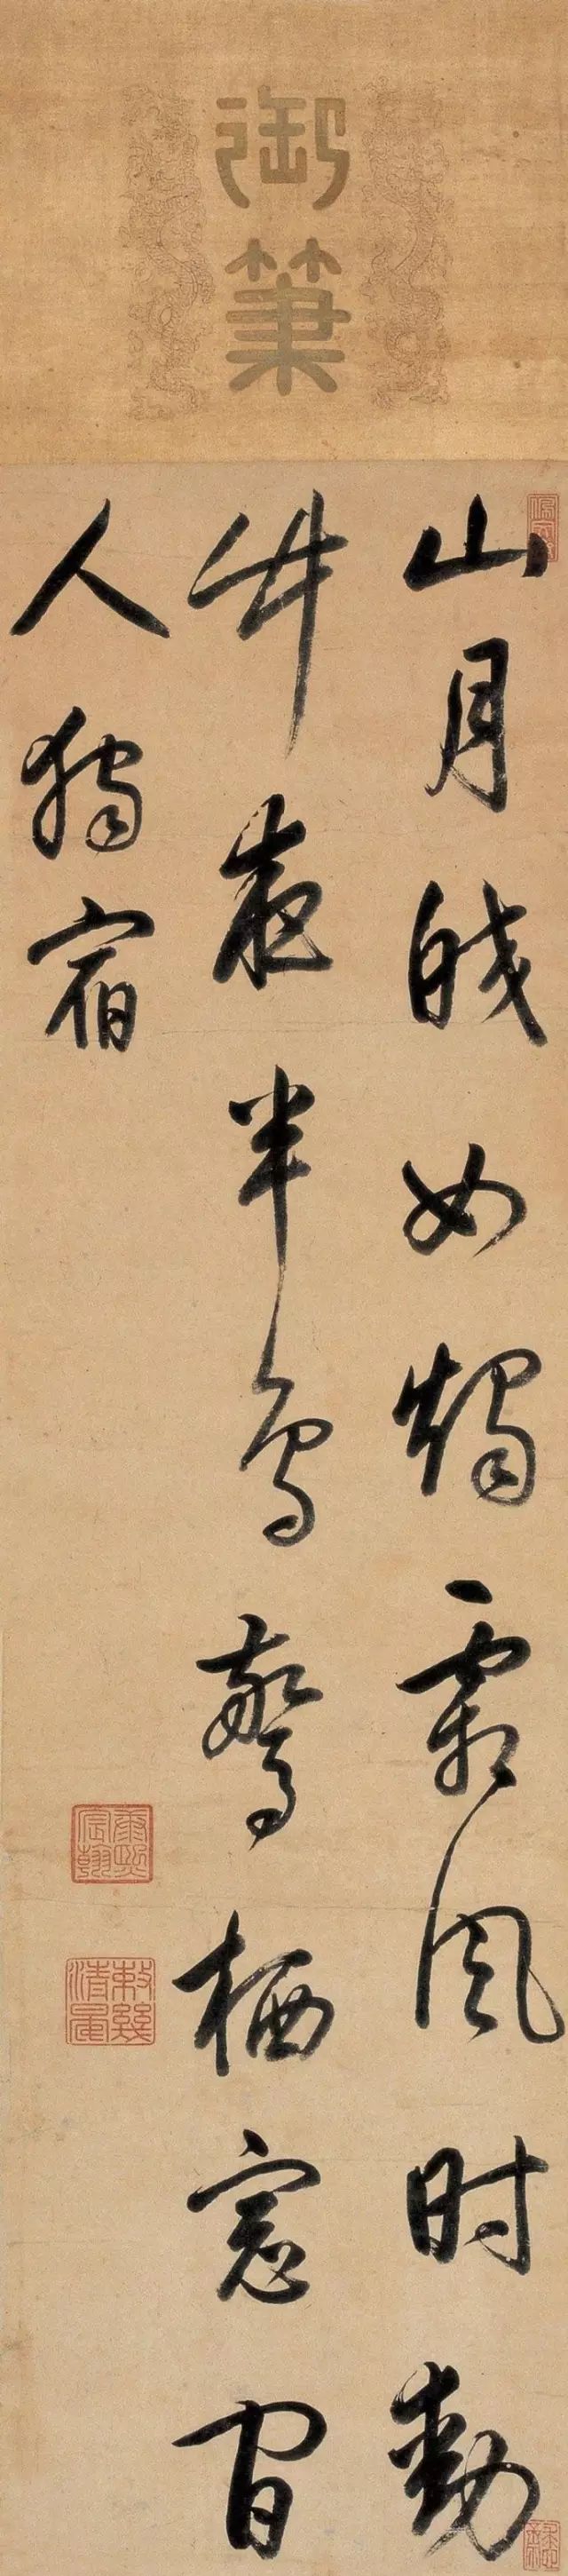 御筆
山月皎如燭霜風时動
竹夜半鳥驚栖窓間
人獨宿
康熙宸翰
敕幾清晏